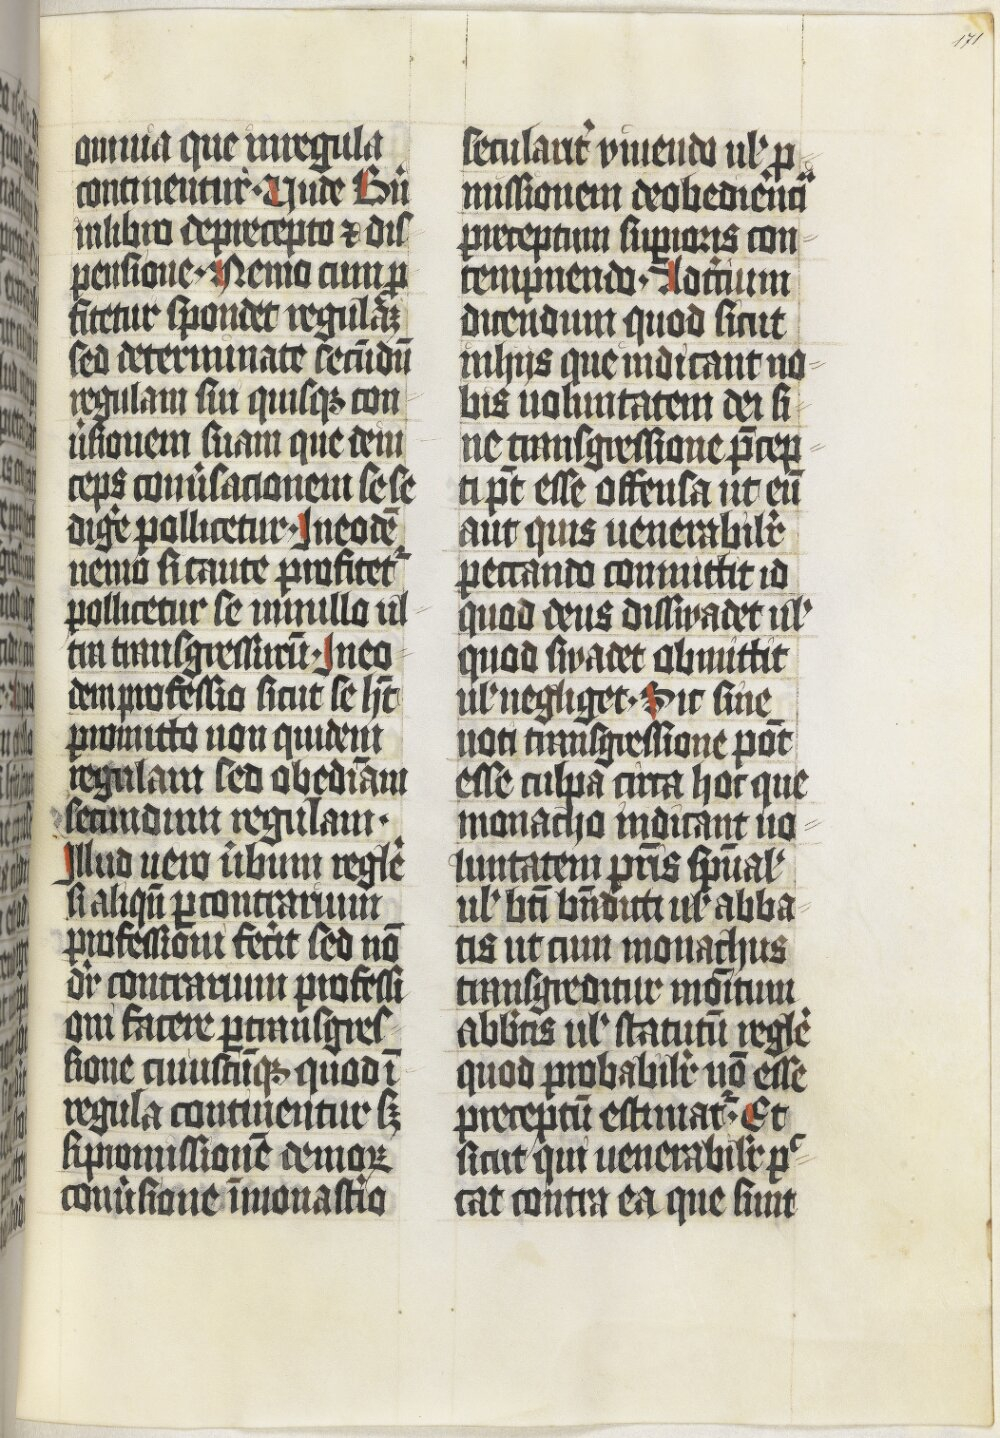 171
omnia que inregula
continentur. Unde Bn̄
inlibro deprecepto ⁊ dis
pensatione. Nemo cum p
fitetur spondet regulaꝫ
sed determinate secūdū
regulam siu quisqꝫ con
ūsionem suam que dein
ceps conūsacionem se se
dig̓e pollicetur. Ineodē
nemo si caute profitet᷑
pollicetur se innullo ul
tra transgressurū. Ineo
dem professio sicut se hȳt
promitto non quidem
regulam sed obediām
secundum regulam.
Illud uero ūbum reglē
si aliqū ꝑcontrarium
professiōni fecīt sed nō
dr̄ contrarium professi
oni facere ꝑtransgres
sione cuiuscūqꝫ quod ī
regula continentur sꝫ
si promissionē demoꝝ
conūsione īmonast̓io
seculariť viuendo ul̓ ꝑ
missionem deobediēnti
preceptum suꝑioris con
tempnendo. Ad t̓cium
dicendum quod sicut
inhijs que indicant uo
luntatem dei si
ne transgressione p̄cep
ti pt̄ esse offensa ut cū
aut quis uenerabilr̓
peccando committit id
quod deus dissuadet ul̓
quod suadet obmittit
ul̓ negliget. Sic sine
uoti transgressione pōt
esse culpa circa hoc que
monacho indicant uo
luntatem pr̄is spūal̓
ul̓ bt̄i bn̄dicti ul̓ abba
tis ut cum monachus
transgreditur mōitum
abb̓tis ul̓ statutū reglē
quod probabilr̓ nō esse
preceptū estimat᷑. Et
sicut qui uenerabilr̓ pᶜ
cat contra ea que sunt